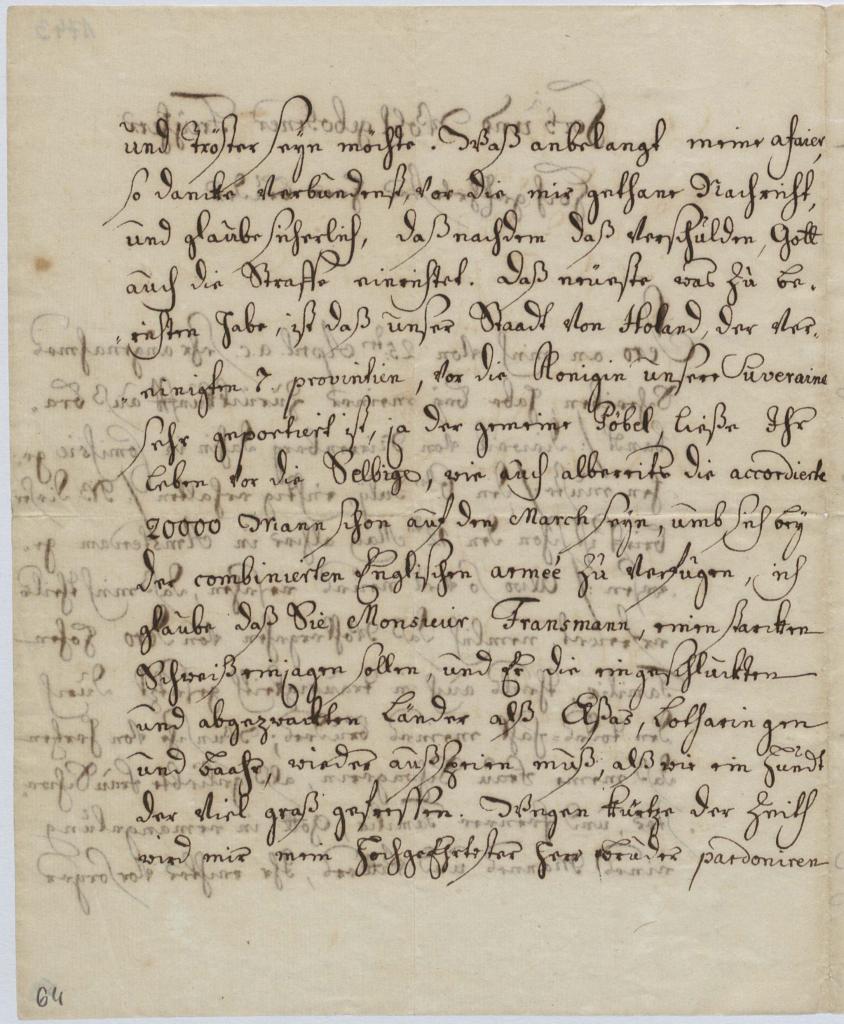 und Tröster seyn möchte. Waß anbelangt meine afaier,
so dancke verbundenst, vor die mir gethane Nachricht,
und glaube sicherlich, daß nachdem daß verschulden, Gott
auch die Straffe einrichtet. Daß neueste was zu be-
richten habe, ist daß unser Staadt von Holand, der ver-
einigten 7 provintien, vor die Königin unsere Suveraine
sehr geportiert ist, ja der gemeine Pöbel, ließe Ihr
leben vor die Selbige, wie auch albereits die accordierte
20000 Mann schon auf den March seyn, umb sich bey
der combinierten Englischen armeé zu verfügen, ich
glaube daß Sie Monsieur Fransmann, einen starcken
Schweiß einjagen sollen, und Er die eingeschluckten
und abgezwackten Länder alß Elsas, Lotharingen
und Baahr, wieder außspeien muß, alß wie ein Hundt
der viel graß gefressen. Wegen kürtze der Zeith
wird mir mein Hochgeehrtester Herr Bruder pardoniren
64